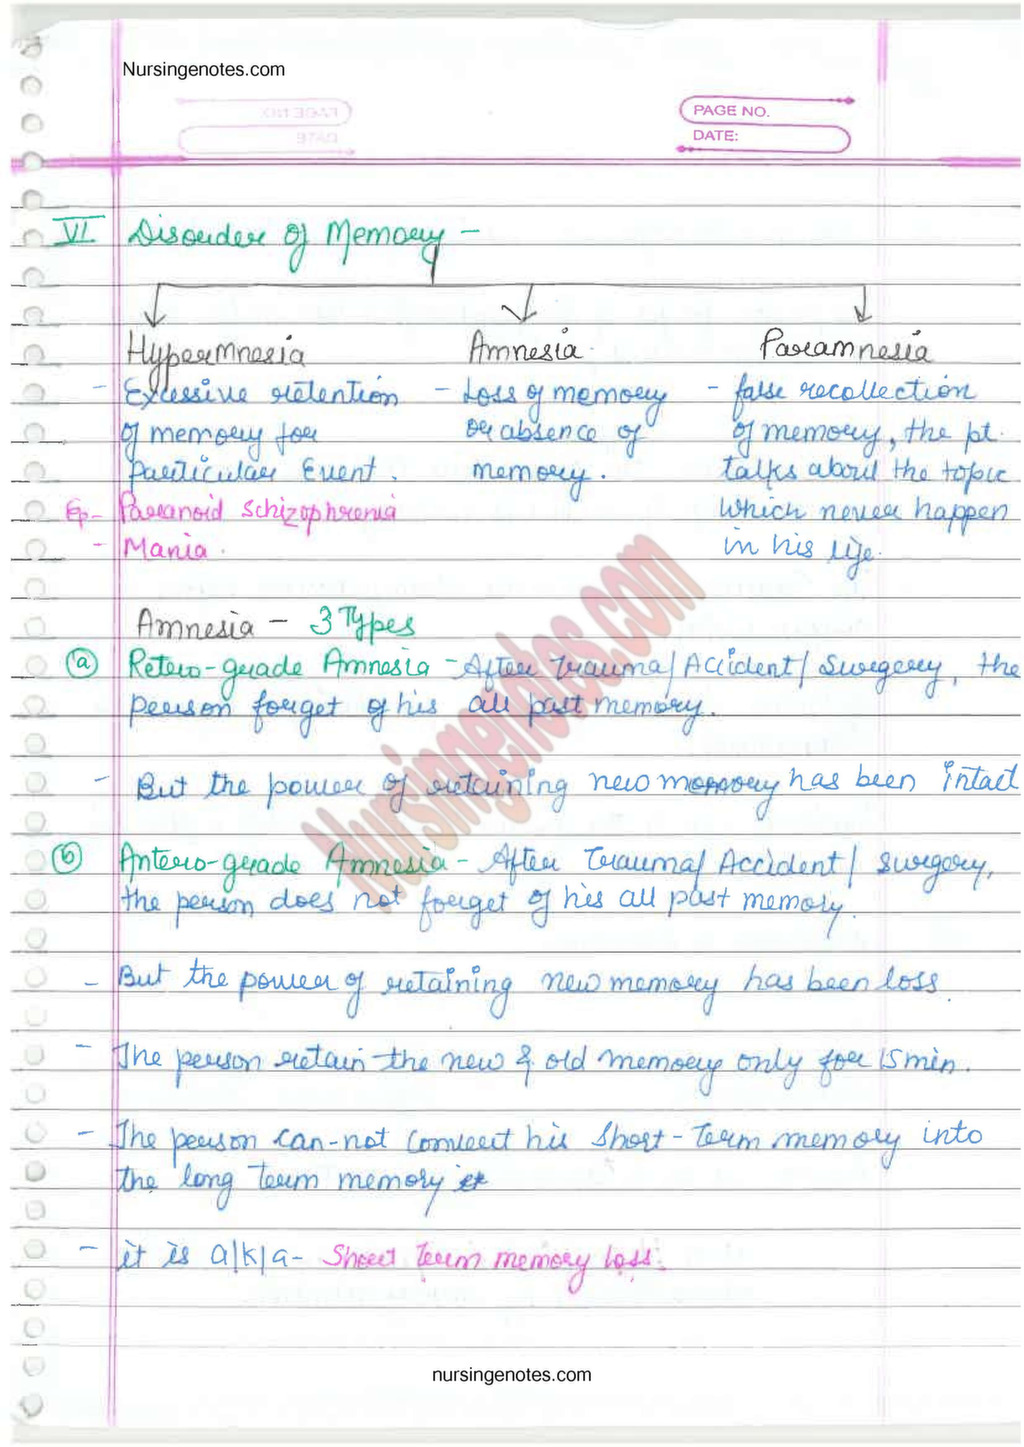 Nursingenotes.com
PAGE NO.
DATE:
VI Disorder of Memory -
Hypermnesia Amnesia Paramnesia
- Excessive retention - Loss of memory - false recollection
of memory for or absence of of memory, the pt.
Particular Event. memory. talks about the topic
Eg- Paranoid Schizophrenia which never happen
- Mania. in his life.
Amnesia - 3 Types
(a) Retero-grade Amnesia - After trauma/Accident/Surgery, the
person forget of his all past memory.
- But the power of retaining new memory has been intact
(b) Antero-grade Amnesia - After trauma/Accident/Surgery,
the person does not forget of his all past memory.
- But the power of retaining new memory has been loss.
- The person retain the new & old memory only for 15 min.
- The person can-not convert his short-term memory into
the long term memory
- it is a/k/a - Short term memory loss.
Nursingenotes.com
nursingenotes.com